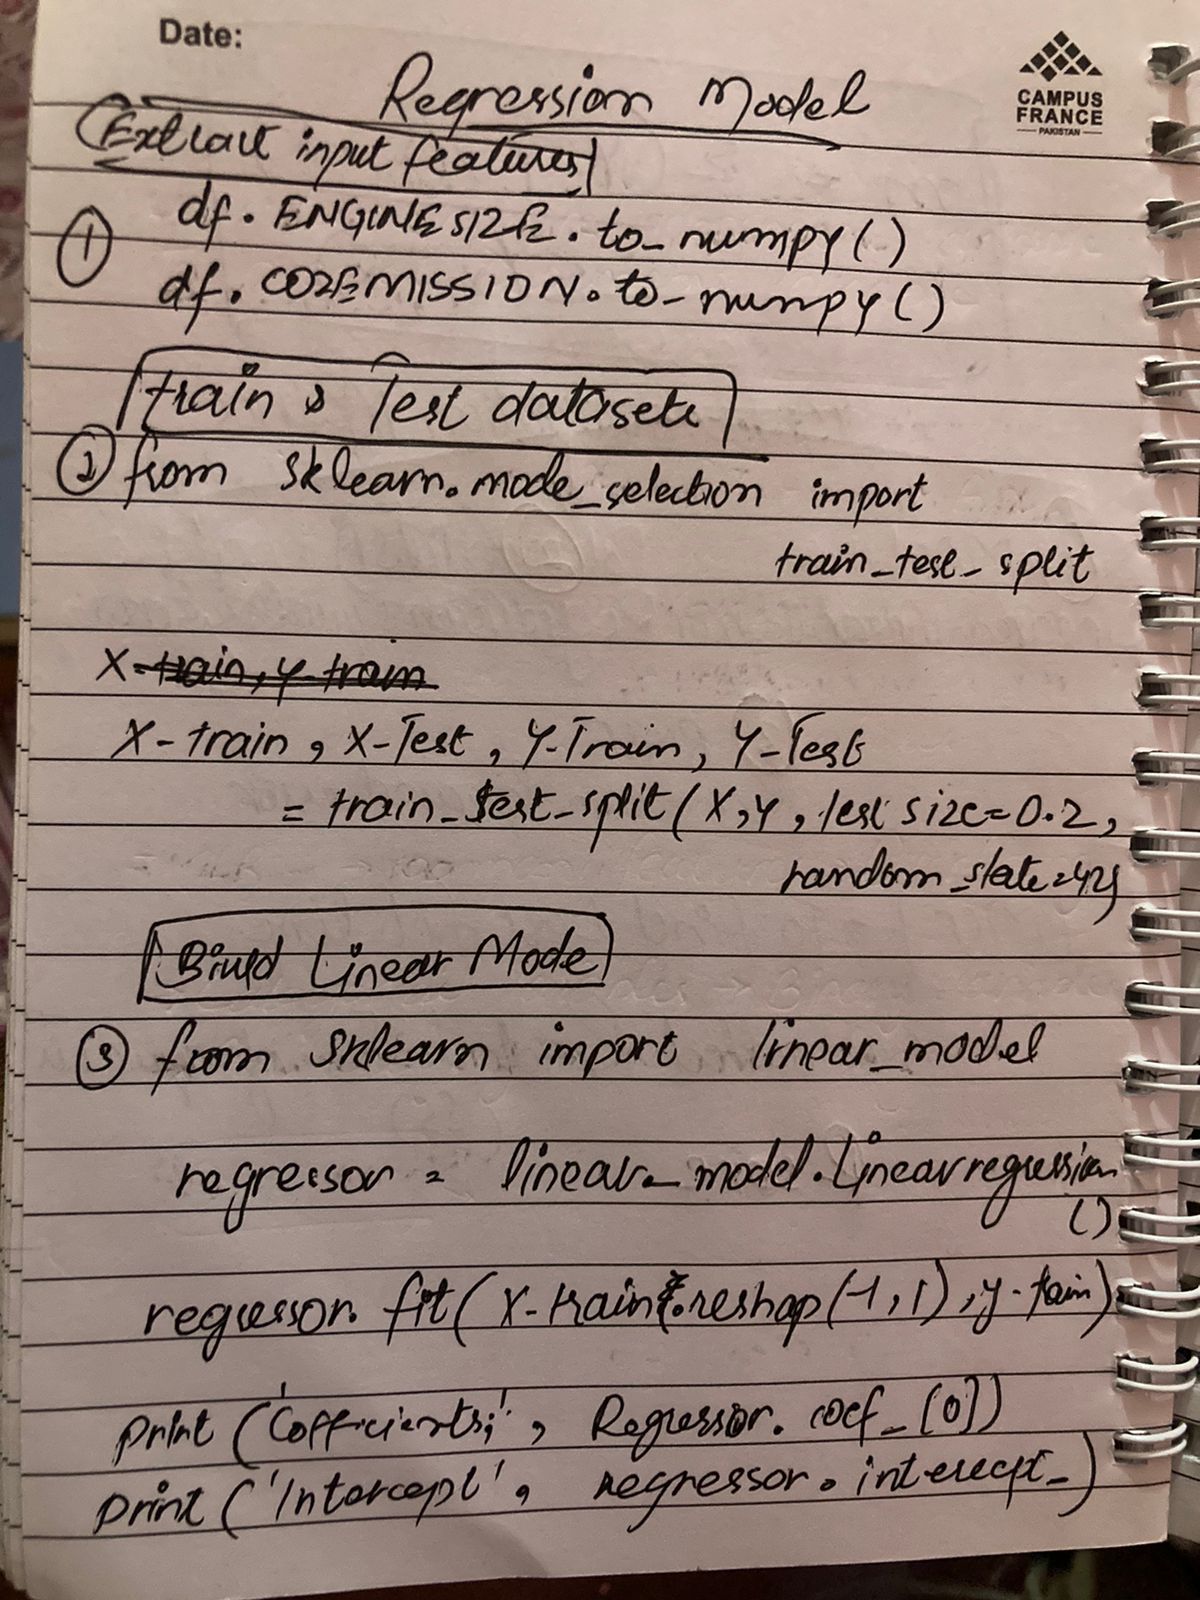 Date:
CAMPUS
FRANCE
PAKISTAN
Regression Model
Extract input features
① df.ENGINESIZE.to_numpy()
df.CO2EMISSION.to_numpy()
train & Test datasets
② from sklearn.mode_selection import
train_test_split
X-train, y-train
X-train, X-Test, Y-Train, Y-Test
= train_test_split(X,Y, test size=0.2,
random_state=42)
Biuld Linear Mode
③ from sklearn import linear_model
regressor = linear_model.Linearregression
()
regressor.fit(X-train.reshap(-1,1),y-tain)
print('Cofficients;', Regressor.coef_[0])
print('Intercept', regressor.intercept_)